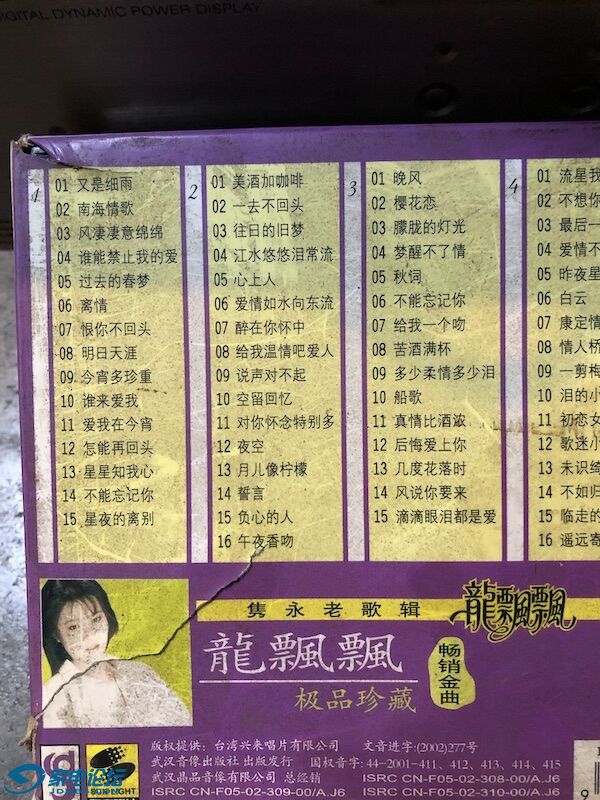 DIGITAL DYNAMIC POWER DISPLAY
1
01 又是细雨
02 南海情歌
03 风凄凄意绵绵
04 谁能禁止我的爱
05 过去的春梦
06 离情
07 恨你不回头
08 明日天涯
09 今宵多珍重
10 谁来爱我
11 爱我在今宵
12 怎能再回头
13 星星知我心
14 不能忘记你
15 星夜的离别
2
01 美酒加咖啡
02 一去不回头
03 往日的旧梦
04 江水悠悠泪常流
05 心上人
06 爱情如水向东流
07 醉在你怀中
08 给我温情吧爱人
09 说声对不起
10 空留回忆
11 对你怀念特别多
12 夜空
13 月儿像柠檬
14 誓言
15 负心的人
16 午夜香吻
3
01 晚风
02 樱花恋
03 朦胧的灯光
04 梦醒不了情
05 秋词
06 不能忘记你
07 给我一个吻
08 苦酒满杯
09 多少柔情多少泪
10 船歌
11 真情比酒浓
12 后悔爱上你
13 几度花落时
14 风说你要来
15 滴滴眼泪都是爱
4
01 流星我
02 不想你
03 最后一
04 爱情不
05 昨夜星
06 白云
07 康定情
08 情人桥
09 一剪梅
10 泪的小
11 初恋女
12 歌迷小
13 未识绮
14 不如归
15 临走的
16 遥远寄
隽永老歌辑
龍飄飄
龍飄飄
畅销金曲
极品珍藏
版权提供：台湾兴来唱片有限公司 文音进字:(2002)277号
武汉音像出版社 出版发行 国权音字: 44-2001-411、412、413、414、415
武汉晶品音像有限公司 总经销 ISRC CN-F05-02-308-00/A.J6
ISRC CN-F05-02-309-00/A.J6 ISRC CN-F05-02-310-00/A.J6
家电论坛